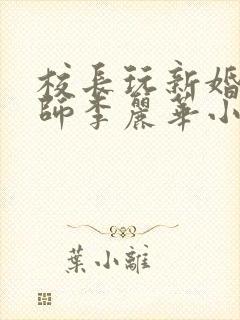 校長玩新婚
師李麗華小
葉小離